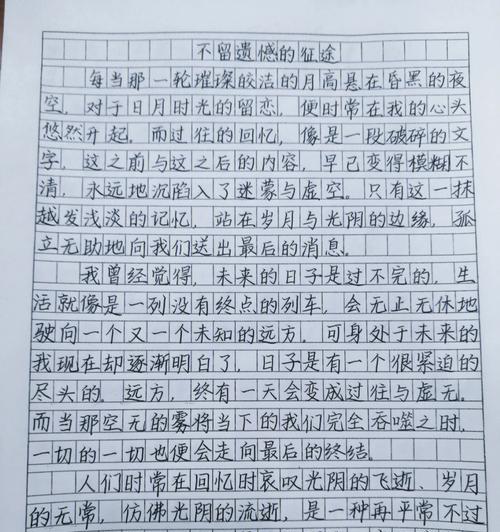 不留遗憾的征途
每当那一轮璀璨皎洁的月高悬在昏黑的夜
空，对于日月时光的留恋，便时常在我的心头
悠然升起。而过往的回忆，像是一段破碎的文
字，这之前与这之后的内容，早已变得模糊不
清，永远地沉陷入了迷蒙与虚空。只有这一抹
越发浅淡的记忆，站在岁月与光阴的边缘，孤
立无助地向我们送出最后的消息。
我曾经觉得，未来的日子是过不完的，生
活就像是一列没有终点的列车，会无止无休地
驶向一个又一个未知的远方，可身处于未来的
我现在却逐渐明白了，日子是有一个很紧迫的
尽头的。远方，终有一天会变成过往与虚无。
而当那空无的雾将当下的我们完全吞噬之时，
一切的一切也便会走向最后的终结。
人们时常在回忆时哀叹光阴的飞逝、岁月
的无常，仿佛光阴的流逝，是一种再平常不过